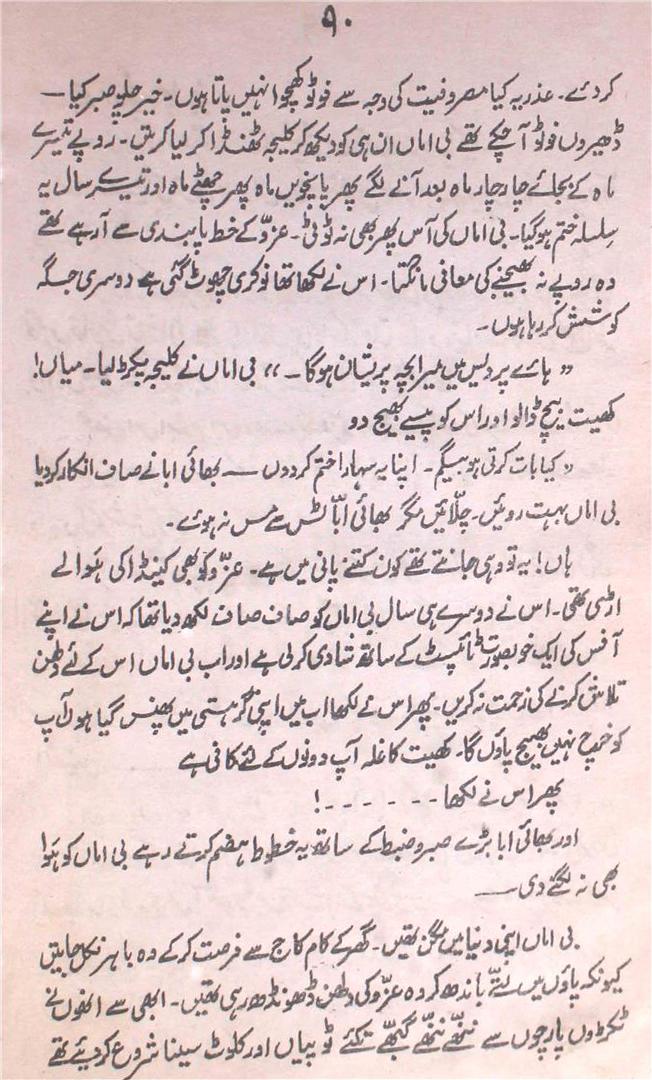 ۹۰
کر دئے۔ عذر یہ کیا مصروفیت کی وجہ سے فوٹو کھچوا نہیں پاتا ہوں۔ خیر چلو صبر کیا —
ڈھیروں فوٹو آ چکے تھے بی اماں ان ہی کو دیکھ کر کلیجہ ٹھنڈا کر لیا کرتیں۔ روپے تیسرے
ماہ کے بجائے چار چار ماہ بعد آنے لگے پھر پانچویں ماہ پھر چھٹے ماہ اور تیسرے سال یہ
سلسلہ ختم ہو گیا۔ بی اماں کی آس پھر بھی نہ ٹوٹی۔ عزّو کے خط پابندی سے آ رہے تھے
وہ روپے نہ بھیجنے کی معافی مانگتا۔ اس نے لکھا تھا نوکری چھوٹ گئی ہے دوسری جگہ
کوشش کر رہا ہوں۔
” ہائے پردیس میں میرا بچہ پریشان ہوگا۔ “ بی اماں نے کلیجہ پکڑ لیا۔ میاں!
کھیت بیچ ڈالو اور اس کو پیسے بھیج دو
” کیا بات کرتی ہو بیگم۔ اپنا یہ سہارا ختم کر دوں — بھائی ابا نے صاف انکار کر دیا
بی اماں بہت روئیں۔ چلّائیں مگر بھائی ابّا ٹس سے مس نہ ہوئے۔
ہاں! یہ تو وہی جانتے تھے کون کتنے پانی میں ہے۔ عزّو کو بھی کینڈا کی ہوا لے
اڑی تھی۔ اس نے دوسرے ہی سال بی اماں کو صاف صاف لکھ دیا تھا کہ اس نے اپنے
آفس کی ایک خوبصورت ٹائپسٹ کے ساتھ شادی کر لی ہے اور اب بی اماں اس کے لئے دلھن
تلاش کرنے کی زحمت نہ کریں۔ پھر اس نے لکھا اب میں اپنی گرہستی میں پھنس گیا ہوں آپ
کو خرچ نہیں بھیج پاؤں گا۔ کھیت کا غلہ آپ دونوں کے لئے کافی ہے
پھر اس نے لکھا - - - - - - !
اور بھائی ابا بڑے صبر و ضبط کے ساتھ یہ خطوط ہضم کرتے رہے بی اماں کو ہوا
بھی نہ لگنے دی —
بی اماں اپنی دنیا میں مگن تھیں۔ گھر کے کام کاج سے فرصت کر کے وہ باہر نکل جاتیں
کیونکہ پاؤں میں لتّے باندھ کر وہ عزّو کی دلھن ڈھونڈھ رہی تھیں۔ ابھی سے انھوں نے
ٹکڑوں پارچوں سے ننھّے ننھّے گبھّے تکئے ٹوپیاں اور کلوٹ سینا شروع کر دیئے تھے